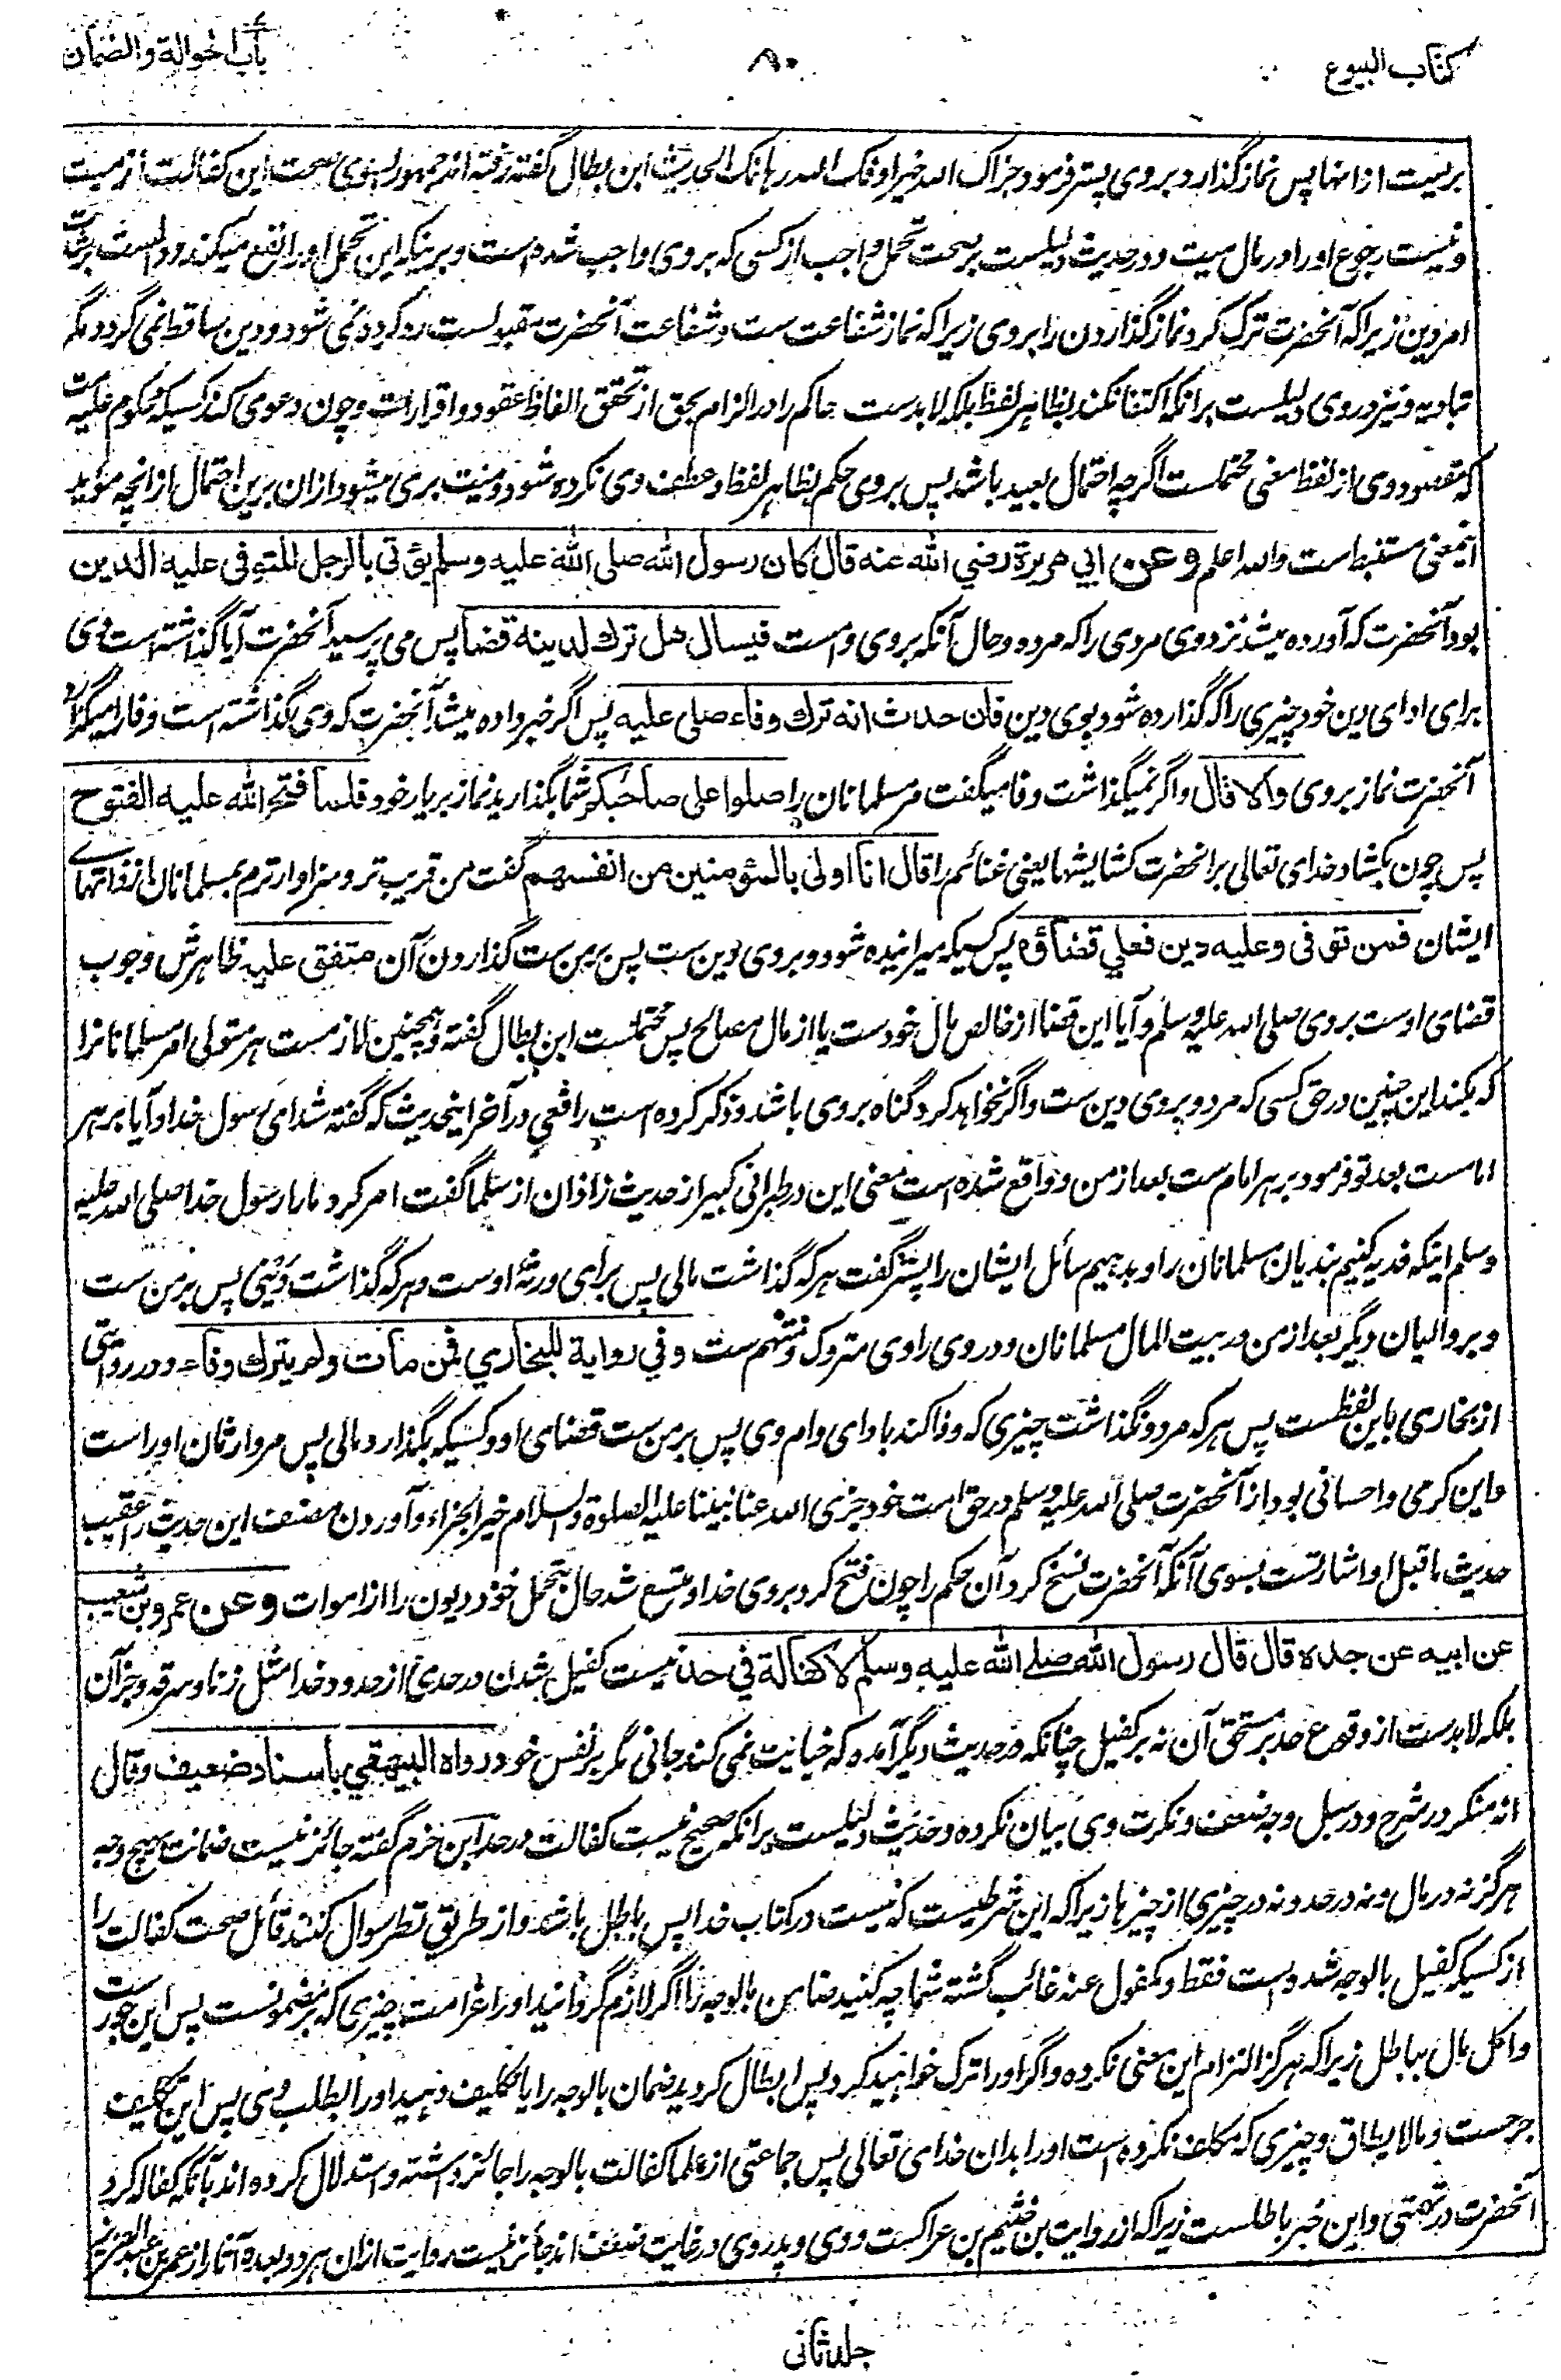 کتاب البیوع
۸۰
باب الحوالة والضمان
بریست ازانها پس نماز گذارد بر وی پستر فرمود جزاک الله خیرا و فک الله رهانک الحدیث ابن بطال گفته رفته اند جمهور بسوی صحت این کفالت از میت
و نیست رجوع او را در مال میت و در حدیث دلیلست بر صحت تحمل واجب از کسی که بر وی واجب شده است و برینکه این تحمل او را نفع میکند و دلست بر شدت
امر دین زیرا که آنحضرت ترک کرد نماز گذاردن را بر وی زیرا که نماز شفاعت ست و شفاعت آنحضرت مقبولست رد کرده نمی شود و دین ساقط نمی گردد مگر
بتادیه و نیز در وی دلیلست برانکه اکتفا نکند بظاهر لفظ بلکه لابدست حاکم را در الزام بحق از تحقق الفاظ عقود و اقرارات و چون دعوی کند کسیکه محکوم علیه ست
که مقصود وی از لفظ معنی محتملست اگرچه احتمال بعید باشد پس بر وی حکم بظاهر لفظ و عطف وی نکرده شود و میت بری میشود ازان برین احتمال از انچه موید
اینمعنی مستنبط است والله اعلم وعن ابي هريرة رضي الله عنه قال كان رسول الله صلى الله عليه وسلم يؤتى بالرجل المتوفى عليه الدين
بود آنحضرت که آورده میشد نزد وی مردی را که مرده و حال آنکه بر وی وامست فيسال هل ترك لدينه قضا پس می پرسید آنحضرت آیا گذاشته است وی
برای ادای دین خود چیزی را که گذارده شود بوی دین فان حدث انه ترك وفاء صلى عليه پس اگر خبر داده میشد آنحضرت که وی بگذاشته است وفا را میگذارد
آنحضرت نماز بر وی والا قال و اگر نمیگذاشت وفا میگفت مر مسلمانان را صلوا على صاحبكم شما بگذارید نماز بر یار خود فلما فتح الله عليه الفتوح
پس چون بکشاد خدای تعالی بر انحضرت کشایشها یعنی غنائم را قال انا اولى بالمؤمنين من انفسهم گفت من قریب تر و سزاوار ترم بمسلمانان از ذاتهای
ایشان فمن توفى وعليه دين فعلي قضاؤه پس کسیکه میرانیده شود و بر وی دین ست پس بر من ست گذاردن آن متفق علیه ظاهرش وجوب
قضای اوست بر وی صلی الله علیه وسلم و آیا این قضا از خالص مال خودست یا از مال مصالح پس محتملست ابن بطال گفته و همچنین لازمست هر متولی امر مسلمانان را
که بکند این چنین در حق کسی که مرد و بر وی دین ست و اگر نخواهد کرد گناه بر وی باشد و ذکر کرده است رافعی در آخر اینحدیث که گفته شد ای رسول خدا و آیا بر هر
امامست بعد تو فرمود بر هر امام ست بعد از من و واقع شده است معنی این در طبرانی کبیر از حدیث زاذان از سلمان گفت امر کرد ما را رسول خدا صلی الله علیه
وسلم اینکه فدیه کنیم بندیان مسلمانان را و بدهیم سائل ایشان را پستر گفت هر که گذاشت مالی پس برای ورثهٔ اوست و هر که گذاشت دینی پس بر من ست
و بر والیان دیگر بعد از من در بیت المال مسلمانان و در وی راوی متروک و متهم ست وفي رواية للبخاري فمن مات ولم يترك وفاء و در روایتی
از بخاری باین لفظست پس هر که مرد و نگذاشت چیزی که وفا کند بادای وام وی پس بر من ست قضای او و کسیکه بگذارد مالی پس مر وارثان او راست
و این کرمی و احسانی بود از آنحضرت صلی الله علیه وسلم در حق امت خود جزی الله عنا نبینا علیه الصلوة والسلام خیر الجزاء و آوردن مصنف این حدیث را عقیب
حدیث ماقبل او اشارتست بسوی آنکه آنحضرت نسخ کرد آن حکم را چون فتح کرد بر وی خدا و متسع شد حال بتحمل خود دیون را از اموات وعن عمرو بن شعيب
عن ابيه عن جده قال قال رسول الله صلى الله عليه وسلم لا كفالة في حد نیست کفیل شدن در حدی از حدود خدا مثل زنا و سرقه و جز آن
بلکه لابدست از وقوع حد بر مستحق آن نه بر کفیل چنانکه در حدیث دیگر آمده که خیانت نمی کند جانی مگر بر نفس خود رواه البيهقي باسناد ضعيف وقال
انه منكر در شرح و در سبل وجه ضعف و نکرت وی بیان نکرده و حدیث دلیلست برانکه صحیح نیست کفالت در حد ابن حزم گفته جائز نیست ضمانت بهیچ وجه
هرگز نه در مال و نه در حد و نه در چیزی از چیزها زیرا که این شرطیست که نیست در کتاب خدا پس باطل باشد و از طریق نظر سوال کنند قائل صحت کفالت را
از کسیکه کفیل بالوجه شده است فقط و مکفول عنه غائب گشته شما چه کنید ضامن بالوجه را اگر لازم گردانید او را غرامت چیزی که بر مضمونست پس این جورست
و اکل مال بباطل زیرا که هرگز التزام این معنی نکرده و اگر او را ترک خواهید کرد پس ابطال کردید ضمان بالوجه را یا تکلیف دهید او را بطلب وی پس این تکلیف
حرجست و مالایطاق و چیزی که مکلف نکرده است او را بدان خدای تعالی پس جماعتی از علما کفالت بالوجه را جائز داشته و استدلال کرده اند بآنکه کفاله کرد
آنحضرت در تهمتی و این خبر باطلست زیرا که از روایت بن خثیم بن عراکست و وی و پدر وی در غایت ضعف اند جائز نیست روایت ازان هر دو بعده آثار از عمر بن عبدالعزیز
جلد ثانی